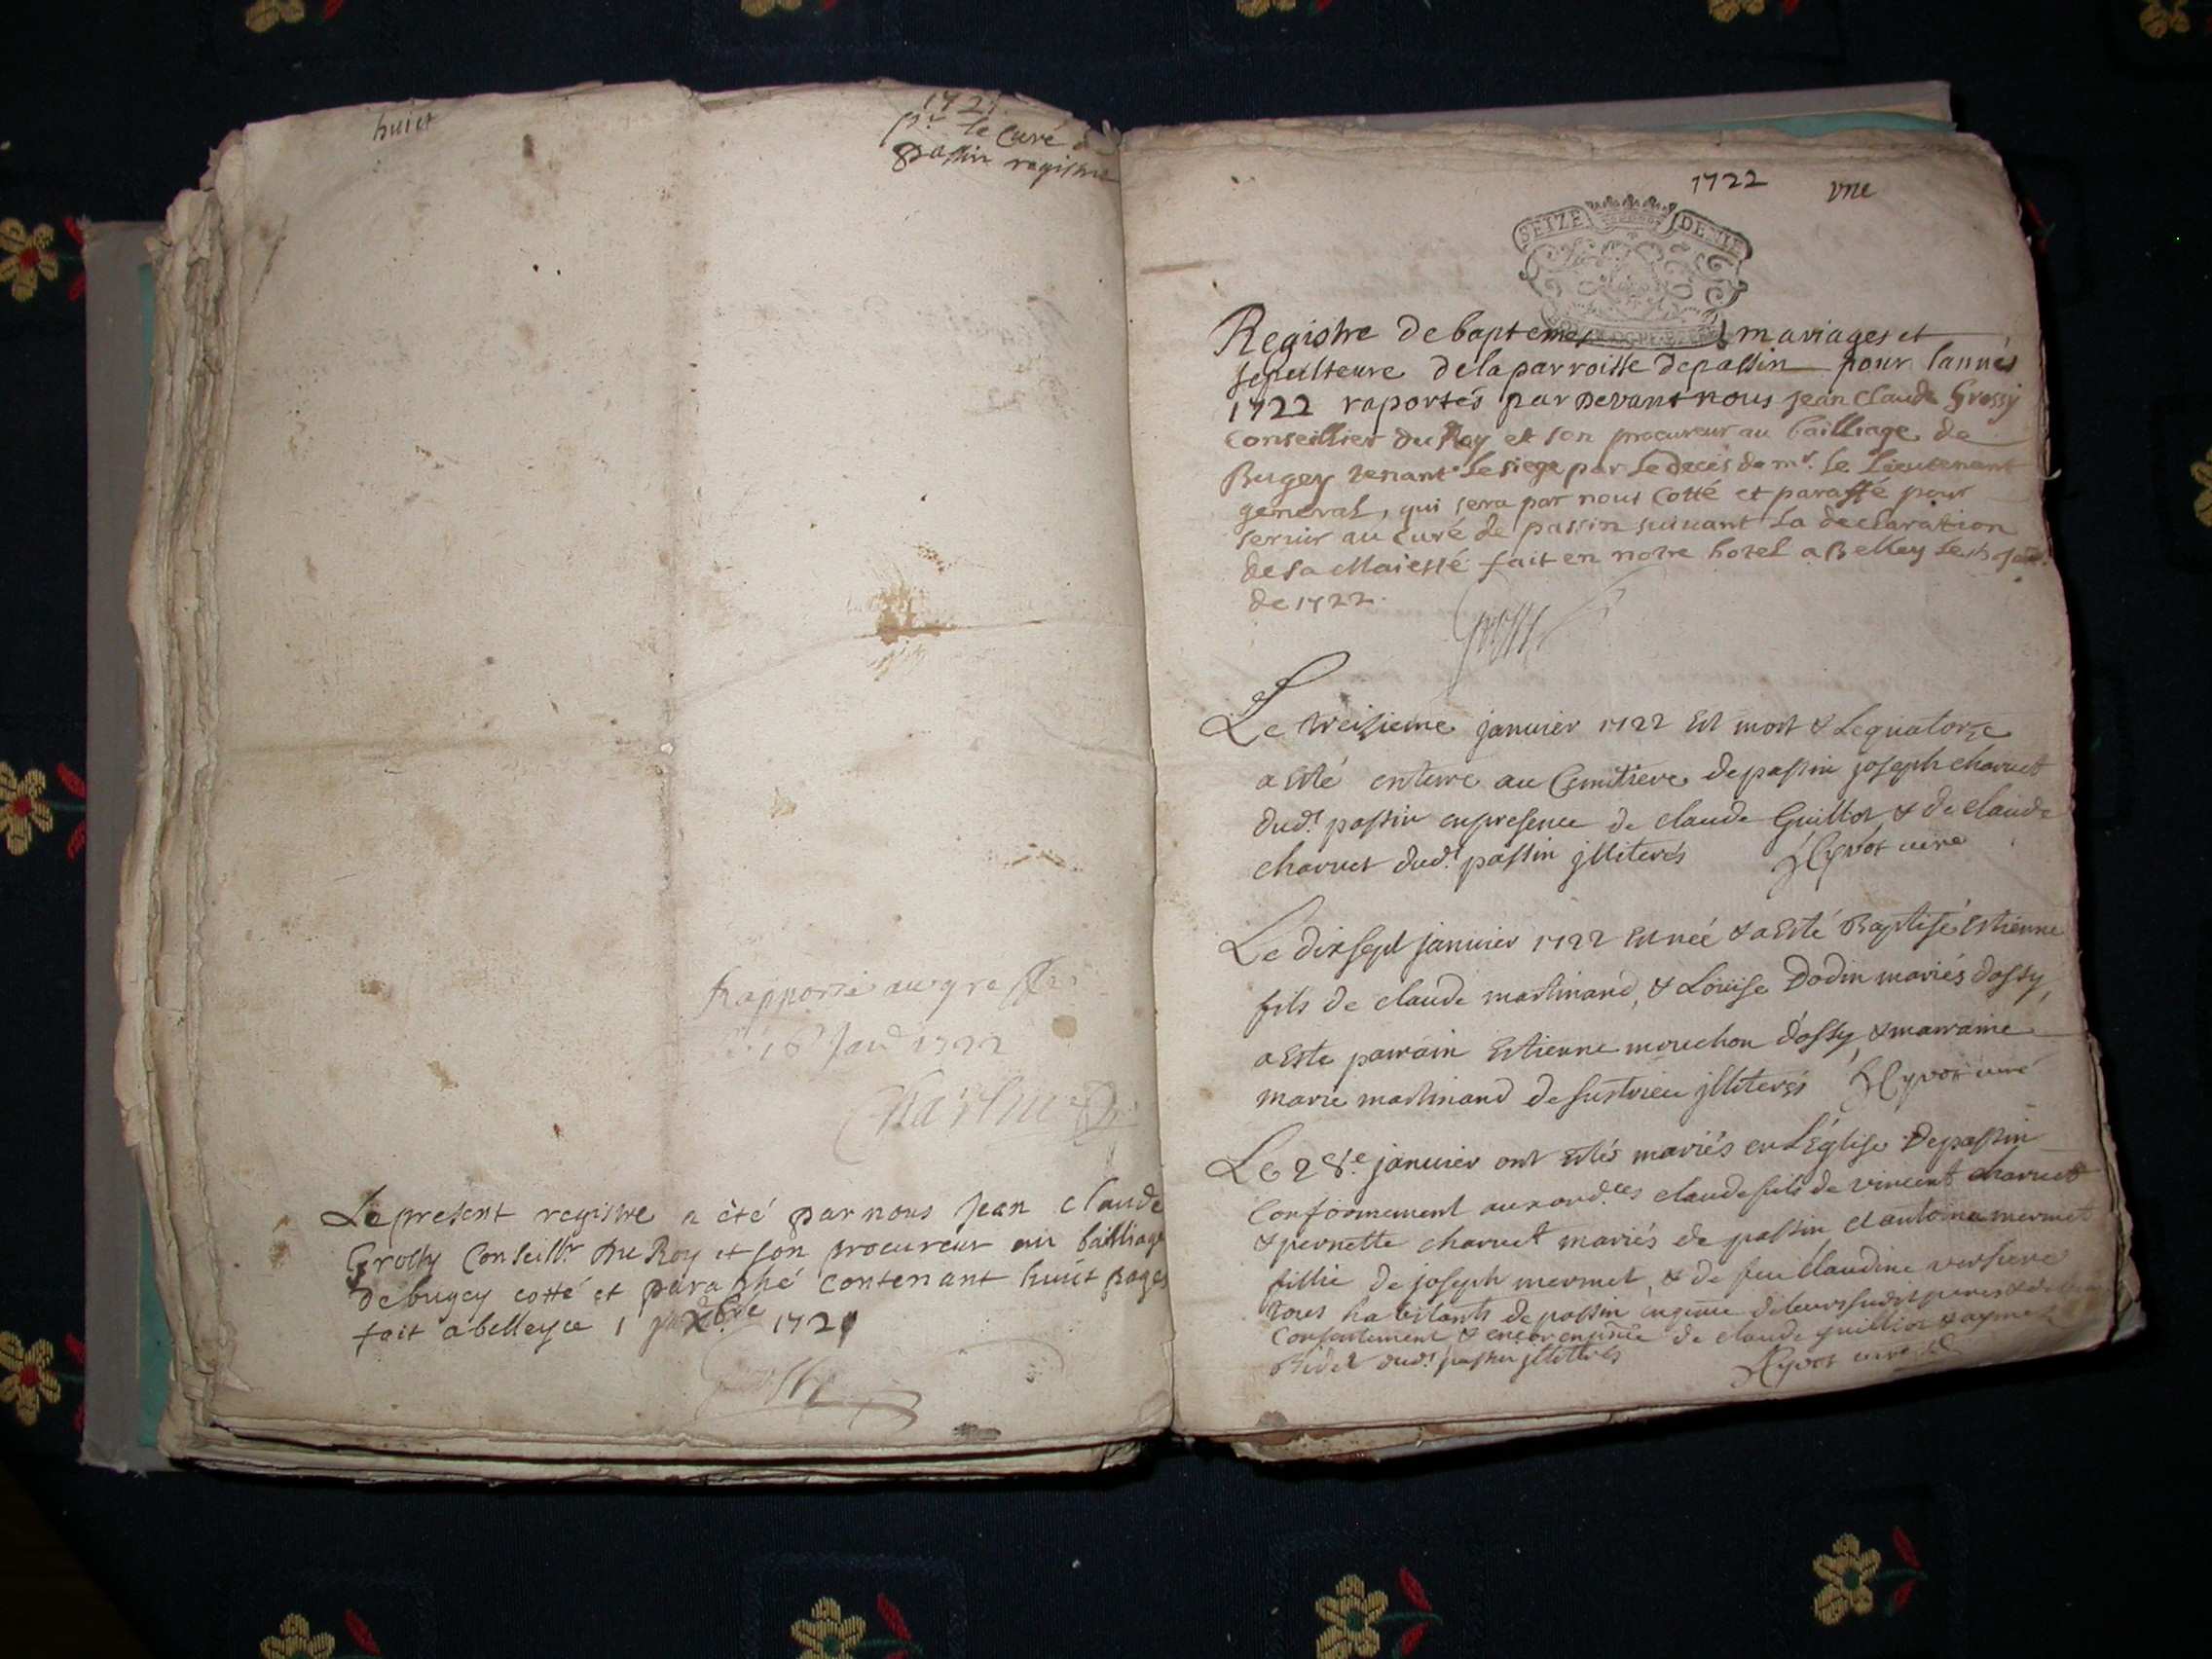 huict
1721
pr. le Curé de
passin registre
Rapporté au greffe
le 16 Janv 1722
Le present registre a été par nous Jean claude
Grossy Conseillr. du Roy et son procureur au bailliage
de bugey cotté et paraphé contenant huict pages
fait a belley ce 1 Xbre 1721
Grossy
1722
vne
SEIZE DENIE
Registre de baptemes mariages et
sepulteure de la parroisse de passin pour lannés
1722 raportés par devant nous jean Claude Grossy
Conseillier du Roy et son procureur au bailliage de
Bugey tenant le siege par le decés de mr. le Lieutenant
general, qui sera par nous Cotté et paraffé pour
seruir au Curé de passin suiuant la declaration
de sa Maiesté fait en notre hotel a Belley le
de 1722.
Grossy
Le treizieme januier 1722 Est mort & Le quatorze
a Esté enterre au Cemitiere de passin joseph charuet
dudt. passin en presence de claude Guillot & de claude
charuet dudt. passin jlliterés Hyvot curé
Le dix sept januier 1722 Est neé & a Esté Baptisé Estienne
fils de claude martinand, & Loüise Dodin mariés dossy,
a Este parrain Estienne mouchon dossy, & marraine
marie martinand de sustrieu jlliterés Hyvot curé
Le 28e. januier ont Estés mariés en L'Eglise de passin
Conformement aux ord.ces claude fils de vincent charuet
& pernette charuet mariés de passin et antoina mermet
fillie de joseph mermet & de feu Claudine
tous habitants de passin en pnce de leurs sudit peres &
Consentement & encor en pnce de claude guilliot & aymé
Bidet dudt. passin jlliterés Hyvot curé